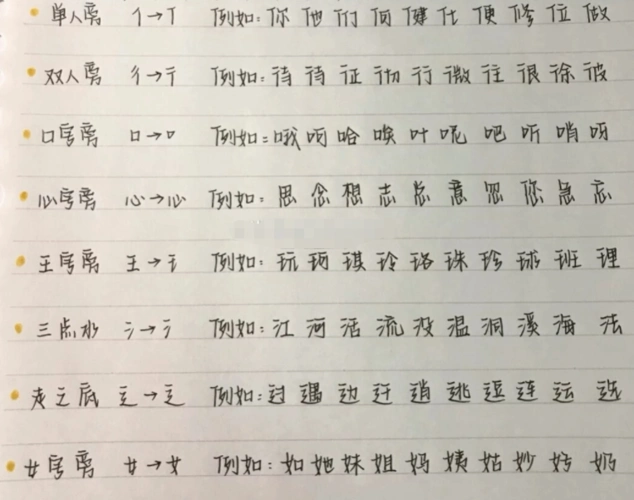 单人旁 亻→亻 例如: 你 他 们 何 健 仕 便 修 位 做
双人旁 彳→彳 例如: 待 待 征 彻 行 微 往 很 徐 彼
口字旁 口→口 例如: 哦 呵 哈 唉 叶 呢 吧 听 哨 呀
心字旁 心→心 例如: 思 念 想 志 总 意 忽 您 急 忘
王字旁 王→王 例如: 玩 珂 琪 玲 珞 珠 珍 球 班 理
三点水 氵→氵 例如: 江 河 活 流 没 温 洞 溪 海 法
走之底 辶→辶 例如: 过 遇 边 迁 逍 逃 逗 连 运 选
女字旁 女→女 例如: 如 她 妹 姐 妈 姨 姑 妙 奶